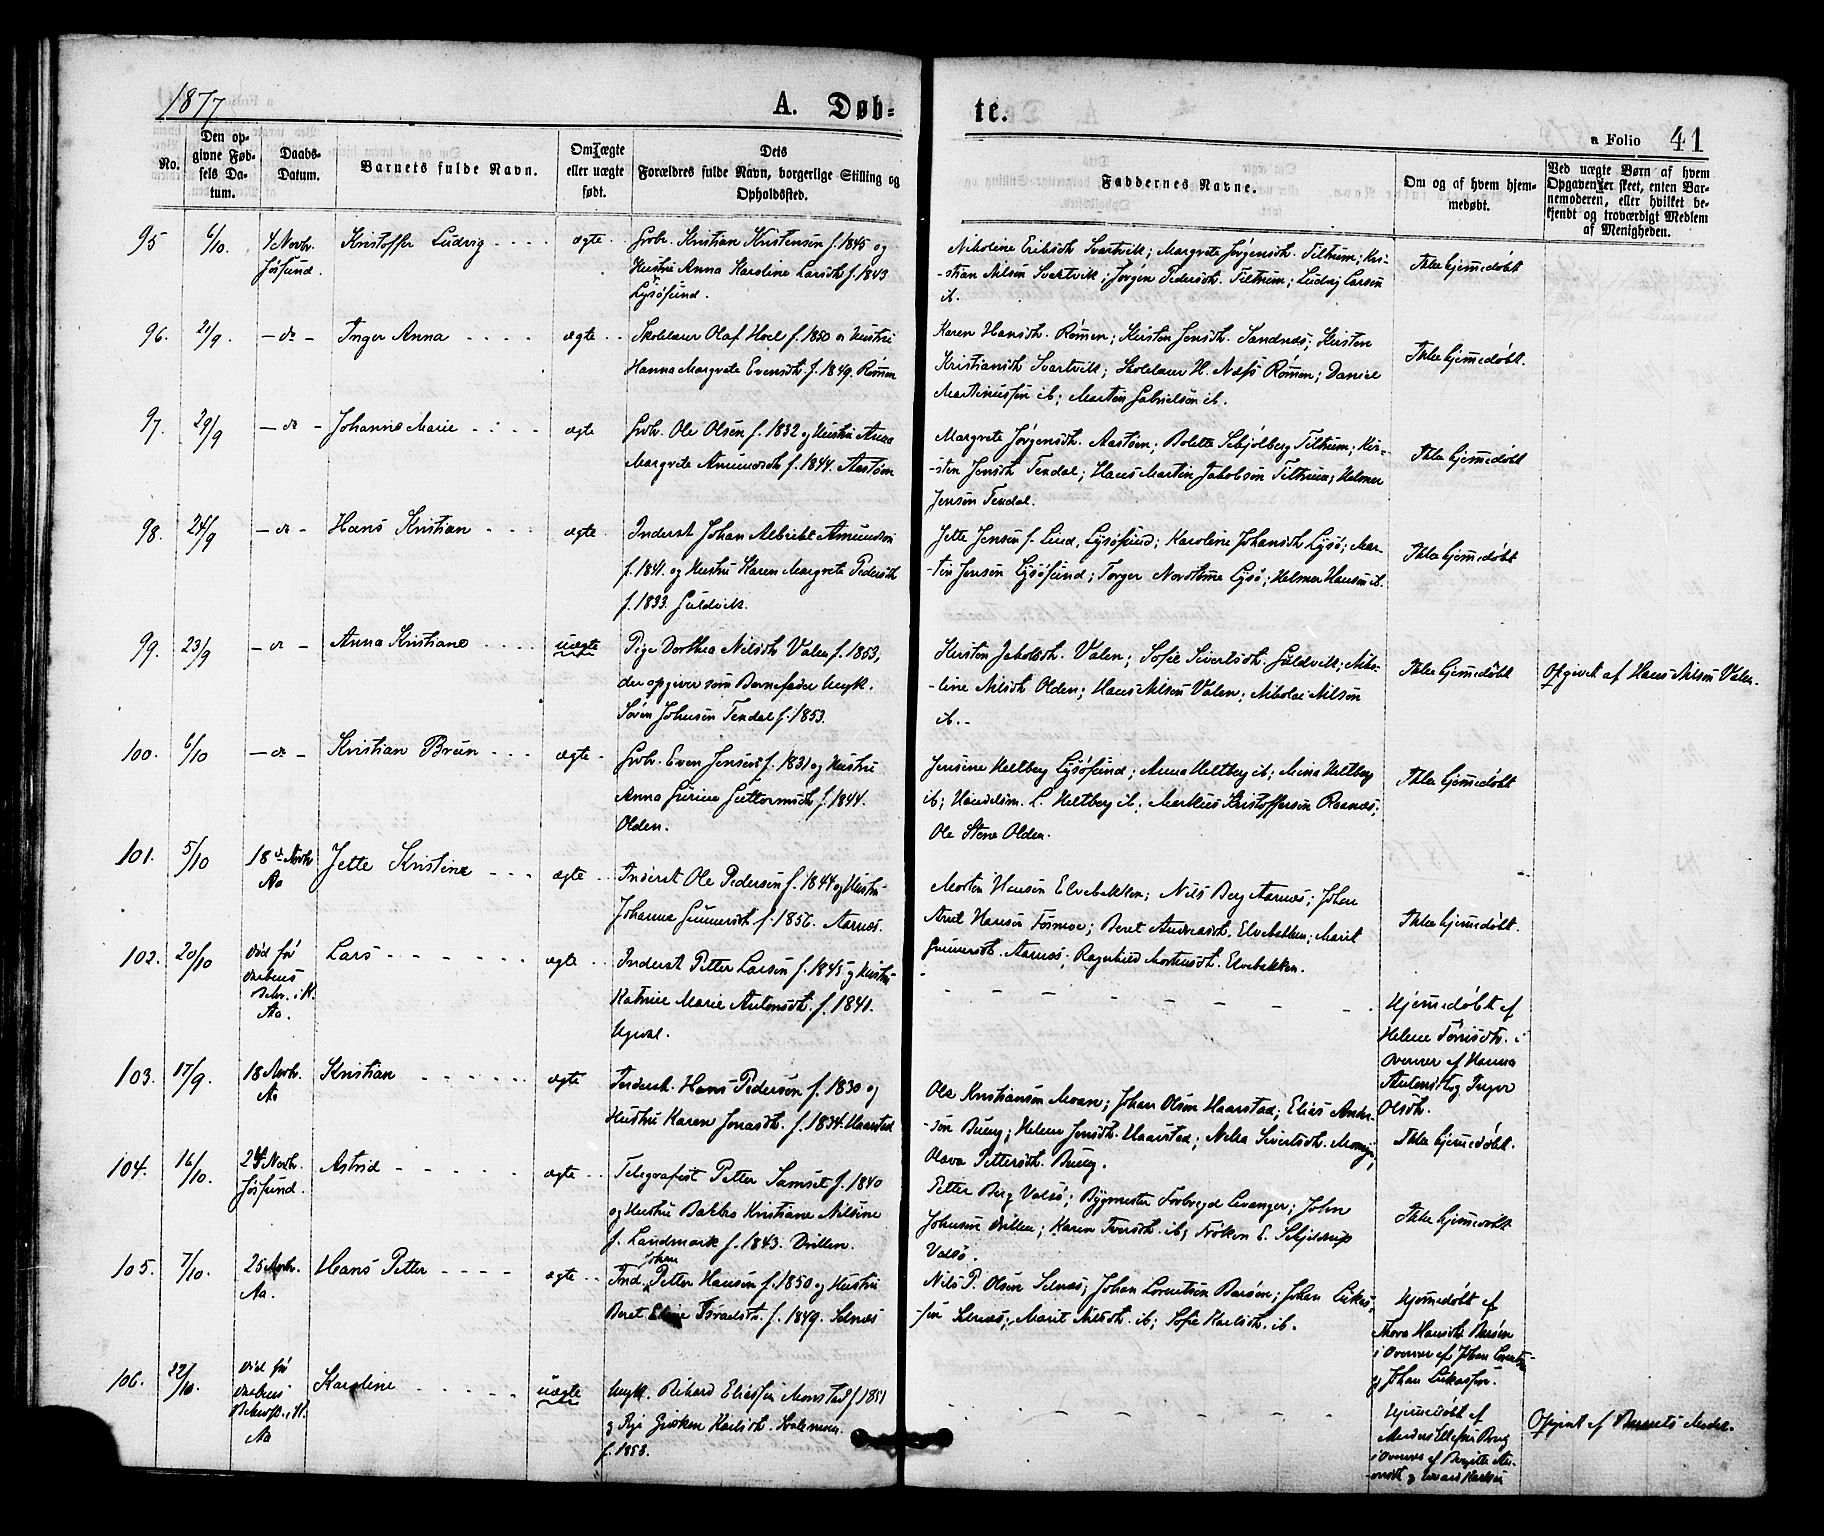 1877
A. Døb-
te.
a Folio 41
No.
Den op-
givne Fød-
sels Da-
tum.
Daabs-
Datum.
Barnets fulde Navn.
Om ægte
eller uægte
født.
Dets
Forældres fulde Navn, borgerlige Stilling og
Opholdssted.
Faddernes Navne.
Om og af hvem hjem-
medøbt.
Ved uægte Børn af hvem
Opgaven er skeet, enten Bar-
nemoderen, eller hvilket be-
kjendt og troværdigt Medlem
af Menigheden.
95 6/10. 4 Novbr. Jøssund. Kristoffer Ludvig ægte
Gvbr. Kristian Kristensen f. 1845 og
Hustru Anna Karoline Larsdt. f. 1843
Lysøsund.
Nikoline Eriksdt. Svartvik; Margrete Jørgensdt. Tiltrum; Kri-
-stian Nilsen Svartvik; Jørgen Pedersdt. Tiltrum; Ludvig Larsen
ib.
Ikke hjemmedøbt
96. 21/9. - do - Inger Anna ægte
Skolelærer Olaf Hoel f. 1850 og Hustru
Hanna Margrete Evensdt. f. 1849. Römen
Karen Hansdt. Römen; Kirsten Jensdt. Sandnæs; Kirsten
Kristiansdt. Svartvik; Skolelærer H. Næss Römen; Daniel
Martinussen ib; Martin Gabrielsen ib.
Ikke hjemmedøbt.
97. 29/9 - do - Johanna Marie ægte
Gvbr. Ole Olsen f. 1832 og Hustru Anna
Margrete Amundsdt. f. 1844. Aastøm
Margrete Jørgensdt. Aastøm; Bolette Schjølberg Tiltrum; Kir-
-sten Jensdt. Teudal; Hans Martin Jakobsen Tiltrum; Helmer
Jensen Teudal.
Ikke hjemmedøbt
98. 24/9 - do - Hans Kristian ægte
Inderst Johan Albrikt Amundsen
f. 1841. og Hustru Karen Margrete Pedersdt
f. 1833. Guldvik.
Jette Jensen f. Lind, Lysøsund; Karoline Johansdt. Lysø; Mar-
-tin Jensen Lysøsund; Torger Lysø; Helmer Hansen ib.
Ikke hjemmedøbt
99. 23/9 - do - Anna Kristiane uægte
Pige Dorthea Nilsdt. Valen f. 1853,
der opgiver som Barnefader Ungk.
Sören Johnsen Teudal f. 1853.
Kirsten Jakobsdt. Valen; Sofie Sivertsdt. Guldvik; Niko-
-line Nilsdt. Olden; Hans Nilsen Valen; Nikolai Nilsen
ib.-
Ikke hjemmedøbt
Opgivet af Hans Nilsen Valen.
100. 6/10 - do - Kristian Bruun ægte
Gvbr. Even Jensen f. 1831 og Hustru
Anna Gurine Guttormsdt. f. 1844.
Olden.
Jensine Heltberg Lysøsund; Anna Heltberg ib; Mina Heltberg
ib; Handelsm. L. Heltberg ib. Markus Kristoffersen Raanæs;
Ole Stene Olden.
Ikke hjemmedøbt
101. 5/10 18de Novbr Aa Jette Kristine ægte
Inderst Ole Pedersen f. 1844 og Hustru
Johanna Gunnersdt. f. 1856. Aarnæs.
Morten Hansen Elvebakken; Nils Berg Aarnæs; Johan
Arnt Hansen Fosmoe; Beret Andreasdt. Elvebakken; Marit
Gunnersdt. Aarnæs; Ragnhild Mortensdt. Elvebakken.
Ikke hjemmedøbt.
102. 20/10 Død før Daabens Bekr. i K. Aa. Lars ægte
Inderst Petter Larsen f. 1845 og Hustru
Katrine Marie Antonsdt. f. 1840.
Hjemmedøbt af
Helene Tørrisdt. i
Overvær af Hanna
Antonsdt. og Inger
Olsdt.
103. 17/9. 18 Novbr. Aa Kristian ægte
Inderst. Hans Pedersen f. 1830 og
Hustru Karen Jonasdt. f. 1834. Haarstad
Ole Kristiansen Moan; Johan Olsen Haarstad; Elias Ander-
-sen Bueng; Helene Jensdt. Haarstad; Nelia Sivertsdt.
Olava Pettersdt. Bueng.
Ikke hjemmedøbt.
104. 16/10. Novbr. Jøssund. Astrid ægte
Telegrafist Petter Samset f. 1840
og Hustru Kristiane Nilsine
f. Landmark f. 1843. Vrillen.
Petter Berg Valsø; Bygmester Forbregd Levanger; John
Johnsen Vrillen; Karen Iversdt. ib; Frøken E. Schjelderup
Valsø.
Ikke hjemmedøbt
105. 7/10. 25 Novbr. Aa. Hans Petter ægte
Ind. Johan Petter Hansen f. 1850 og Hustru
Beret Eline Israelsdt. f. 1849. Selnæs
Nils P. Olsen Selnæs; Johan Lorentsen Barsøen; Johan Lukas-
-sen Selnæs; Marit Nilsdt. ib; Sofie Karlsdt. ib.
Hjemmedøbt af
Thora Hansdt. Barsøen
i Overvær af Johan Lorentsen
og Johan Lukassen.
106. 22/10. Død før Daabens Bekræft. i K. Aa Karoline uægte
Ungk. Rikard Eliassen Monstad f. 1851
og Pige Gjørken Karlsdt.
f. 1853.
Hjemmedøbt af
i Overvær af Bergitte
Opgivet af Barnets Moder.